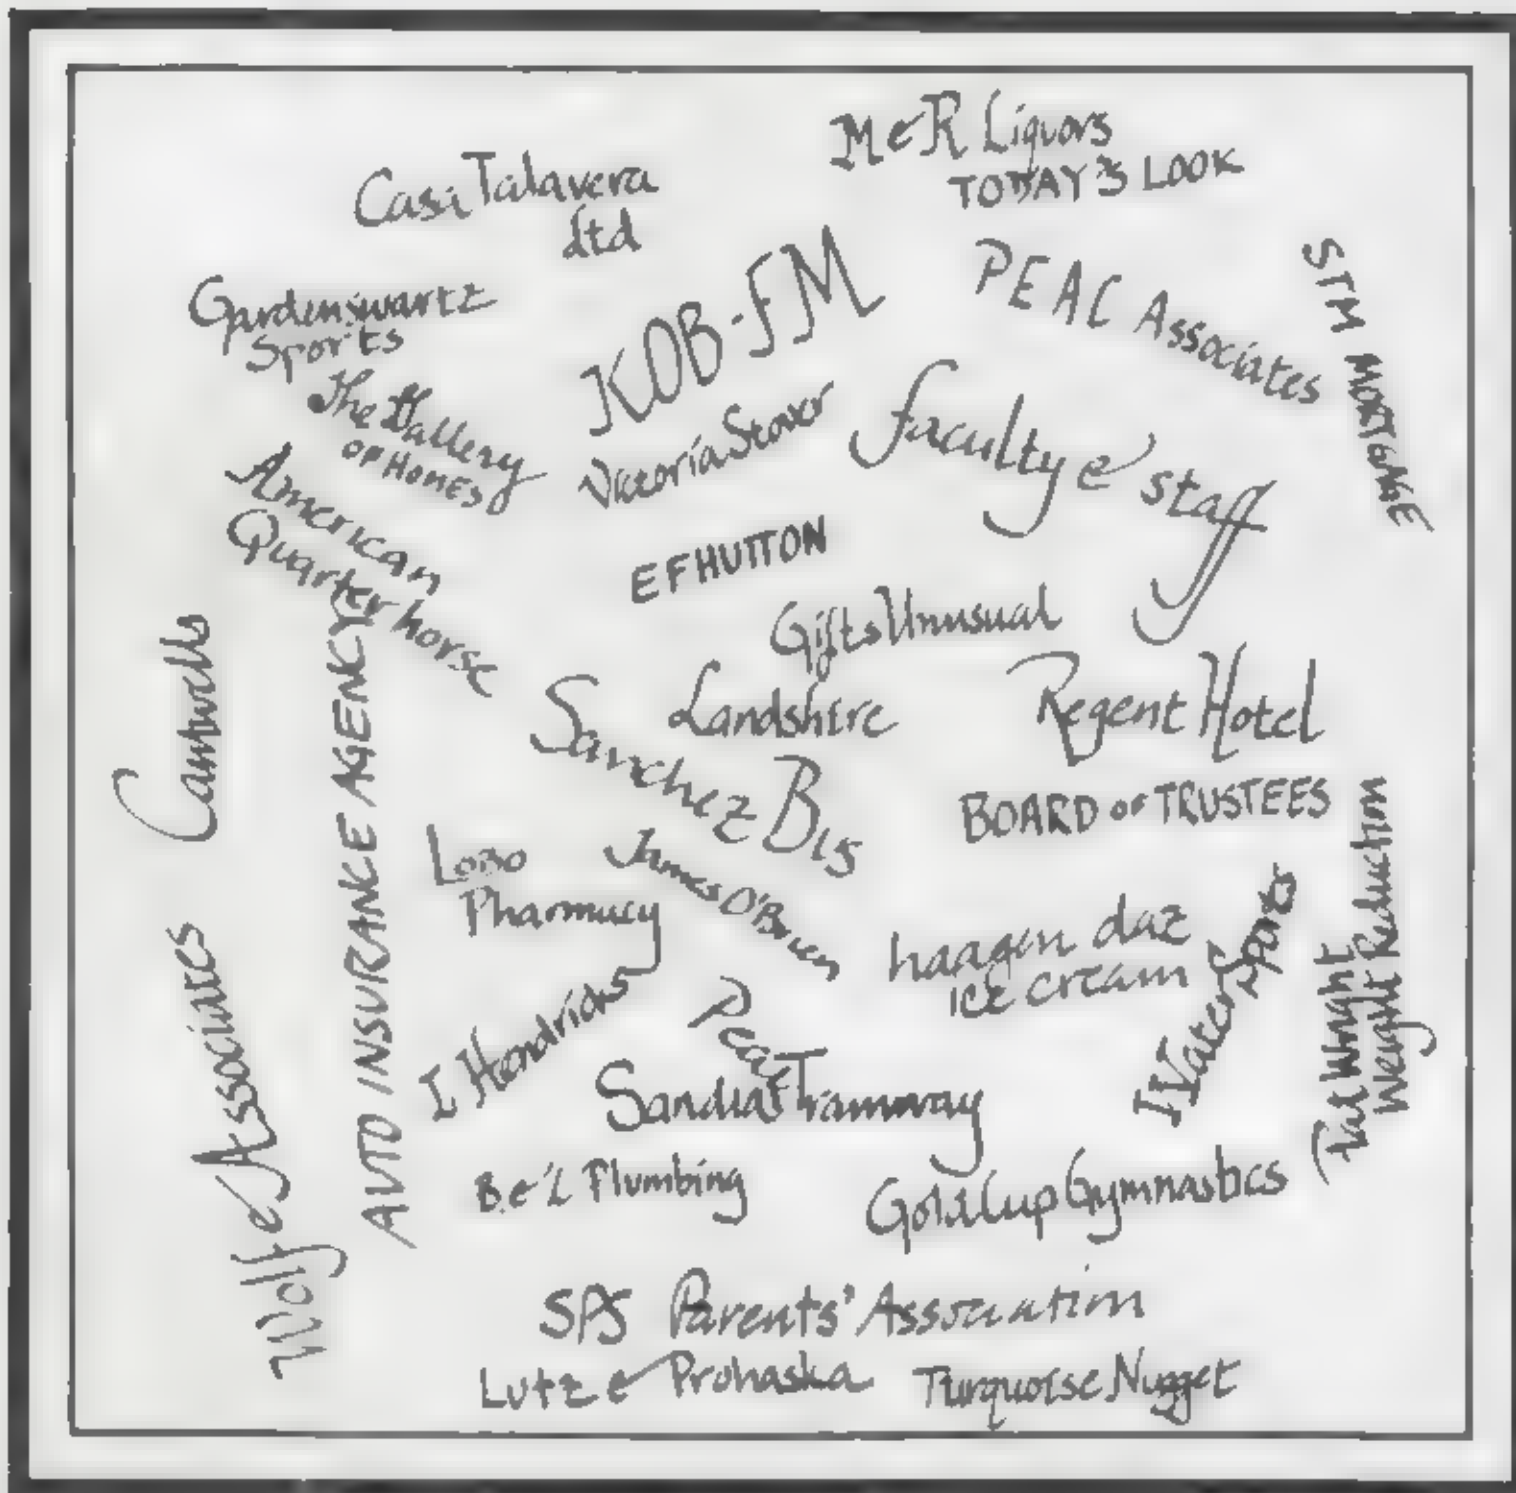 M & R Liquors
TODAY'S LOOK
Casa Talavera
Ltd
KOB-FM
PEAC Associates
STM MORTGAGE
Gardenswartz
Sports
The Gallery
OF HOMES
Victoria Stover
faculty & staff
American
Quarter horse
EFHUTTON
Gifts Unusual
Cantwells
AUTO INSURANCE AGENCY
Landshire
Regent Hotel
Sanchez
BOARD OF TRUSTEES
Lobo
Pharmacy
James O'Brien
haagen daz
ice cream
Water Sports
Pat Wright
Weight Reduction
Wolfe Associates
I Hendricks
Peat
Sandia Tramway
B & L Plumbing
Gold Cup Gymnastics
SPS Parents' Association
Lutz & Prohaska
Turquoise Nugget